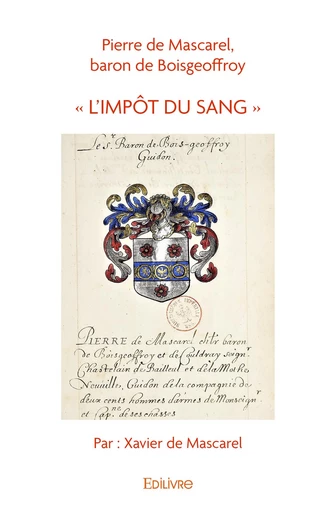 Pierre de Mascarel,
baron de Boisgeoffroy
« L'IMPÔT DU SANG »
Le Sr. Baron de Bois-geoffroy
Guidon.
PIERRE de Mascarel dit baron
de Boisgeoffroy et de Couldray seignr
Chastelain de Bailleul et de la Mothe,
Neuuille, Guidon de la compagnie de
deux cents hommes d'armes de Monseignr
et Capne de ses chasses
Par : Xavier de Mascarel
EDILIVRE